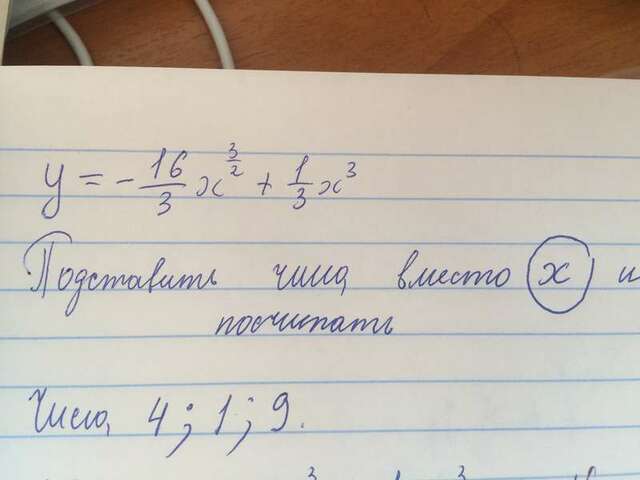 y = -16/3 x^(3/2) + 1/3 x^3
Подставить числа вместо x и
посчитать
Числа 4; 1; 9.